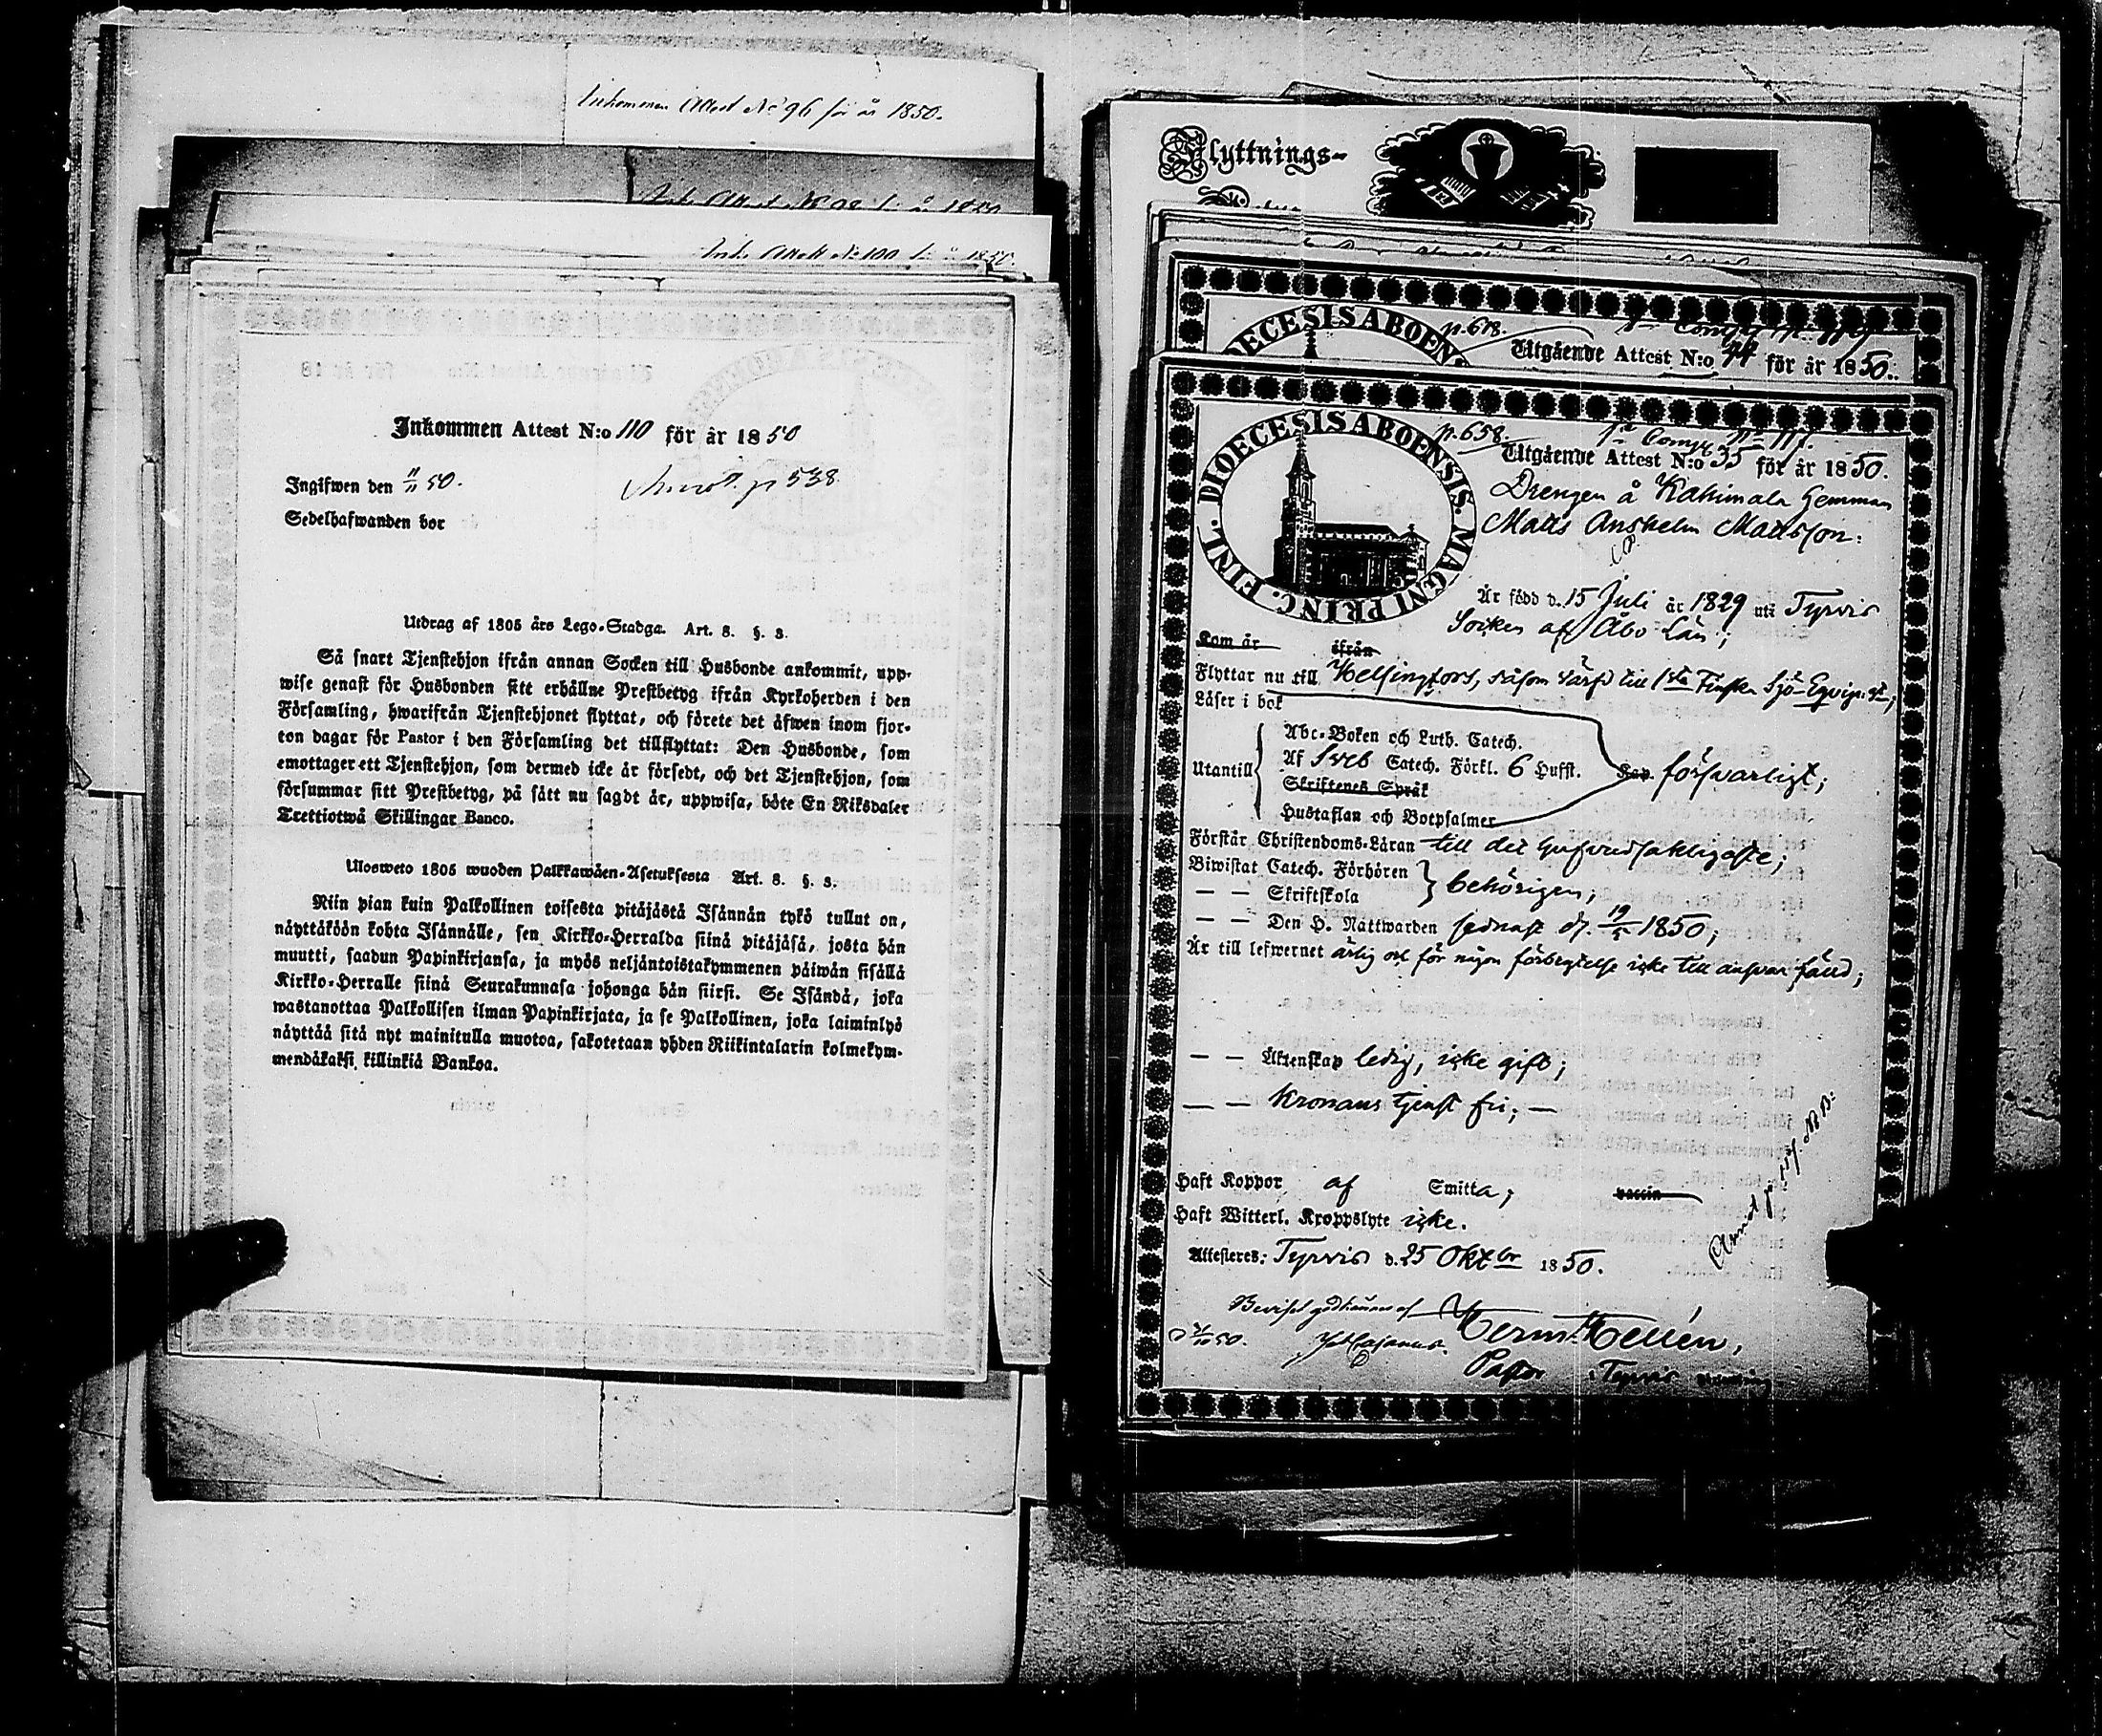 Inkommen Attest No 96 för år 1850.
Ink. Attest No 98 för år 1850
Ink. Attest No 100 för år 1850.
Inkommen Attest N:o 110 för år 1850
Ingifwen den 11/11 50.
p 538.
Sedelhafwanden bor
Utdrag af 1805 års Lego-Stadga. Art. 8. §. 3.
Så snart Tjenstehjon ifrån annan Socken till Husbonde ankommit, upp-
wise genast för Husbonden sitt erhållne Prestbetyg ifrån Kyrkoherden i den
Församling, hwarifrån Tjenstehjonet flyttat, och förete det äfwen inom fjor-
ton dagar för Pastor i den Församling det tillflyttat: Den Husbonde, som
emottager ett Tjenstehjon, som dermed icke är försedt, och det Tjenstehjon, som
försummar sitt Prestbetyg, på sätt nu sagdt är, uppwisa, böte En Riksdaler
Trettiotwå Skillingar Banco.
Ulosweto 1805 wuoden Palkkawäen-Asetuksesta Art. 8. §. 3.
Niin pian kuin Palkollinen toisesta pitäjästä Isännän tykö tullut on,
näyttäköön kohta Isännälle, sen Kirkko-Herralda siinä pitäjäsä, josta hän
muutti, saadun Papinkirjansa, ja myös neljäntoistakymmenen päiwän sisällä
Kirkko-Herralle siinä Seurakunnasa johonga hän siirsi. Se Isändä, joka
wastanottaa Palkollisen ilman Papinkirjata, ja se Palkollinen, joka laiminlyö
näyttää sitä nyt mainitulla muotoa, sakotetaan yhden Riikintalarin kolmekym-
mendäkaksi killinkiä Bankoa.
Flyttnings-
DIOECESIS ABOENS
p. 678.
Utgående Attest N:o 44 för år 1850.
FINL. DIOECESIS ABOENSIS. MAGNI PRINC.
p. 658.
1a Comp. No 117.
Utgående Attest N:o 35 för år 1850.
Drengen å Kahimala hemman
Matts Anshelm Mattsson:
Är född d. 15 Juli år 1829 uti Tyrvis
Socken af Åbo Län;
Kom år ifrån
Flyttar nu till Helsingfors, såsom värfd till 1sta Finska Sjö-Eqvip.
Läser i bok
Abc-Boken och Luth. Catech.
Utantill Af Sveb Catech. Förkl. 6 Hufst. Kap. försvarligt;
Skriftenes Språk
Hustaflan och Botpsalmer
Förstår Christendoms-Läran till det hufvudsakligaste;
Biwistat Catech. Förhören behörigen;
— — Skriftskola
— — Den H. Nattwarden sednast d. 19/5 1850;
Är till lefwernet ärlig och för någon förbrytelse icke till ansvar fälld;
— — Äktenskap ledig, icke gift;
— — Kronans tjenst fri; —
Haft Koppor af Smitta; vaccin
Haft Witterl. Kroppslyte icke.
Attesteres: Tyrvis d. 25 Oktbr 1850.
Beviset godkännes af
Herm. Hellén,
Pastor i Tyrvis